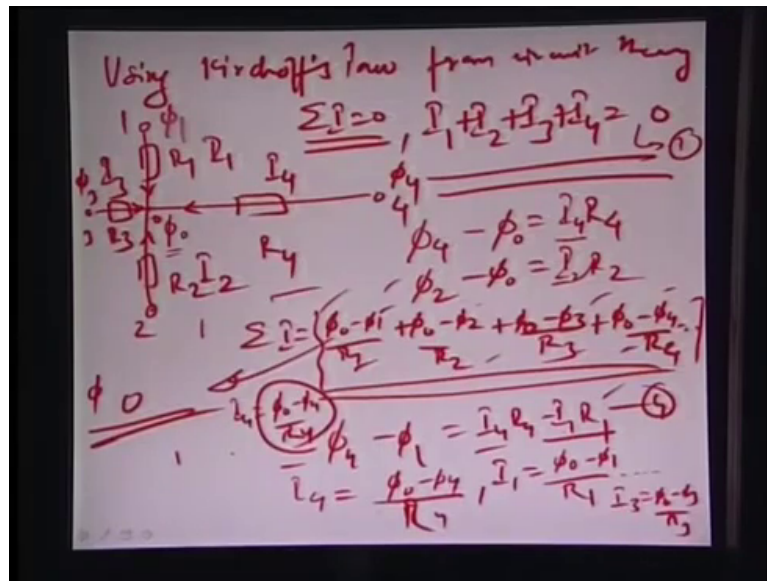 Using Kirchoff's law from circuit theory
1 φ1 ΣI=0, I1+I2+I3+I4=0
→ ①
R1 I1 I4 φ4
φ3 I3 4
3 R3 φ0 φ4-φ0=I4R4
R2 I2 R4 φ2-φ0=I2R2
2 1 ΣI={φ0-φ1/R1+φ0-φ2/R2+φ0-φ3/R3+φ0-φ4/R4}
φ0 I4=φ0-φ4/R4 φ4-φ1=I4R4-I1R1 — ④
I4=φ0-φ4/R4, I1=φ0-φ1/R1 .... I3=φ0-φ3/R3